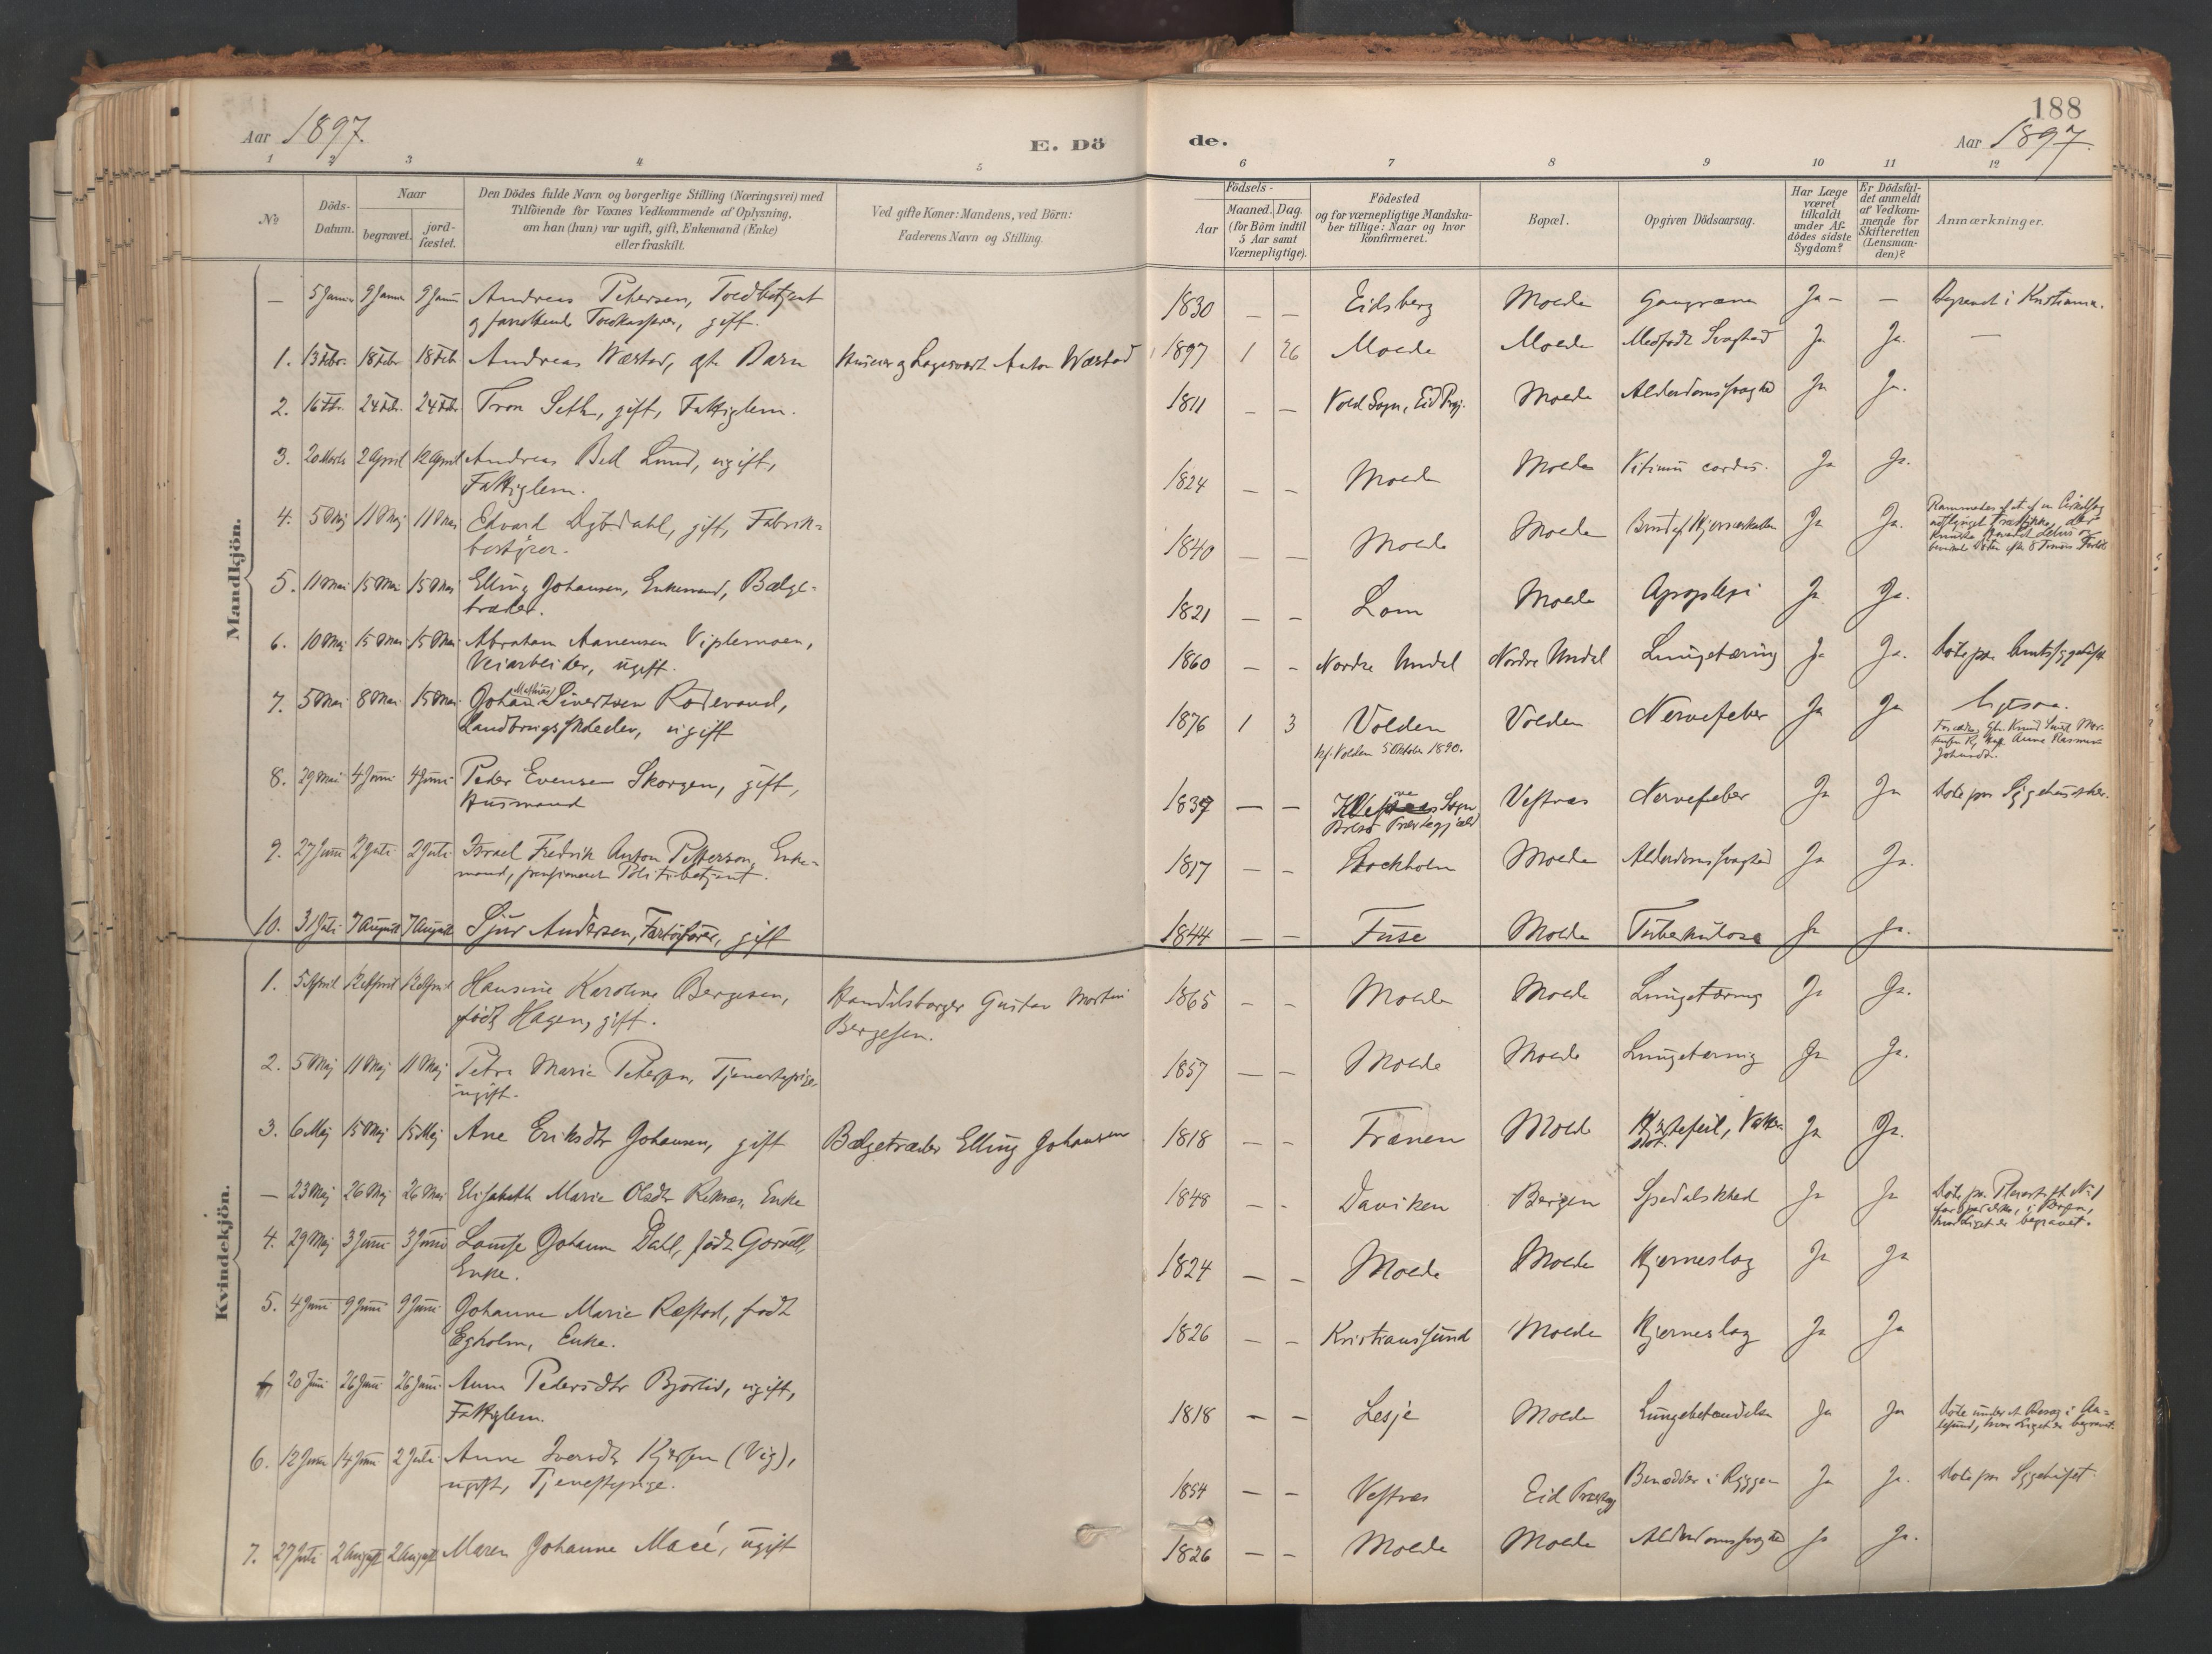 188
Aar 1897.
E. Dö
de.
Aar 1897.
1 2 3 4 5 6 7 8 9 10 11 12
No
Döds-Datum.
Naar
begravet.
jord-fæstet.
Den Dödes fulde Navn og borgerlige Stilling (Næringsvei) med
Tilföiende for Voxnes Vedkommende af Oplysning,
om han (hun) var ugift, gift, Enkemand (Enke)
eller fraskilt.
Ved gifte Koner: Mandens, ved Börn:
Faderens Navn og Stilling.
Födsels-
Aar
Maaned.
Dag.
(for Börn indtil
5 Aar samt
Værnepligtige).
Födested
og for værnepligtige Mandska-
ber tillige: Naar og hvor
konfirmeret.
Bopæl.
Opgiven Dödsaarsag.
Har Læge
været
tilkaldt
under Af-
dödes sidste
Sygdom?
Er Dödsfal-
det anmeldt
af Vedkom-
mende for
Skifteretten
(Lensman-
den)?
Anmærkninger.
Mandkjön.
— 5 Januar 9 Januar 9 Januar Andreas Petersen, Toldbetjent 1830 — — Eidsberg Molde Gangræna Ja — — Begravet i Kristiania.
og Toldkasserer, gift.
1. 13 Febr. 18 Febr 18 Febr Andreas Wæstad, ægte Barn Anton Wæstad 1897 1 26 Molde Molde Medfödt Svaghed Ja Ja. —
2. 16 Fbr. 24 Fbr. 24 Fbr. Tron Seth, gift, Fattiglem. 1811 — — Vold Sogn, Eid Prgj. Molde Alderdomssvaghed Ja Ja.
3. 20 Marts 2 April 12 April Andreas Bell Lund, ugift, 1824 — — Molde Molde Vitium cordis. Ja Ja.
Fattiglem.
4. 5 Maj 11 Maj 11 Mai Edvard Dybdahl, gift, Fabrik- 1840 — — Molde Molde Ja Ja.
bestyrer.
5. 11 Mai 15 Mai 15 Mai Elling Johansen, Enkemand, Bælge- 1821 — — Lom Molde Apoplexi Ja Ja.
træder.
6. 10 Maj 15 Mai 15 Mai Abraham Aanensen Viplemoen, 1860 — — Nordre Undal Nordre Undal Lungetæring Ja Ja. Döde paa Amtssygehuset
Veiarbeider, ugift.
7. 5 Mai 8 Mai 15 Mai Johan Mathias Sivertsen Rödevand, 1876 1 3 Volden Volden Nervefeber Ja Ja Ligesaa.
Landbrugs, ugift
kf. Volden 5 Oktober 1890.
8. 29 Mai 4 Juni 4 Juni Peder Evensen Skorgen, gift, 1837 — — Sogn, Vestnæs Nervefeber Ja Ja Döde paa Sygehuset her.
Husmand
Præstegjæld
9. 27 Juni 2 Juli 2 Juli Israel Fredrik Anton Petterson, Enke- 1817 — — Stockholm Molde Alderdomssvaghed Ja Ja.
mand, pensioneret Politibetjent.
10. 31 Juli 7 August 7 August Sjur Andersen, Fartöiförer, gift 1844 — — Fuse Molde Tuberkulose Ja Ja.
Kvindekjön.
1. 5 April 12 April 12 April Hansine Karoline Bergesen, Handelsborger Gustav Martin 1865 — — Molde Molde Lungetæring Ja Ja.
född Hagen, gift. Bergesen.
2. 5 Maj 11 Maj 11 Maj Petra Marie Petersen, Tjenestepige, 1857 — — Molde Molde Lungetæring Ja Ja.
ugift.
3. 6 Maj 15 Maj 15 Maj Ane Eriksdtr Johansen, gift Bælgetræder Elling Johansen 1818 — — Frænen Molde Hjertefeil, Ja Ja.
— 23 Maj 26 Maj 26 Mai Elisabeth Marie Olsdtr Enke 1848 — - Daviken Bergen Spedalskhed Ja Ja
begravet.
4. 29 Maj 3 Juni 3 Juni Louise Johanne Dahl, född 1824 — — Molde Molde Hjerneslag Ja Ja
Enke.
5. 4 Juni 9 Juni 9 Juni Johanne Marie Ræstad, född 1826 — — Kristianssund Molde Hjerneslag Ja Ja
Egholm, Enke.
20 Juni 26 Juni 26 Juni Anne Pedersdtr Bjorlid, ugift, 1818 — — Lesje Molde Lungebetændelse Ja Ja Döde under et Besög i
Fattiglem. hvor Liget er begravet.
6. 12 Juni 14 Juni 2 Juli Anne Iversdtr (Vig), 1854 — — Vestnæs Eid Benedder i Ryggen Ja Ja. Döde paa Sygehuset.
ugift, Tjenestepige.
7. 27 Juli 2 August 2 August Maren Johanne Macé, ugift 1826 — — Molde Molde Alderdomssvaghed Ja Ja.